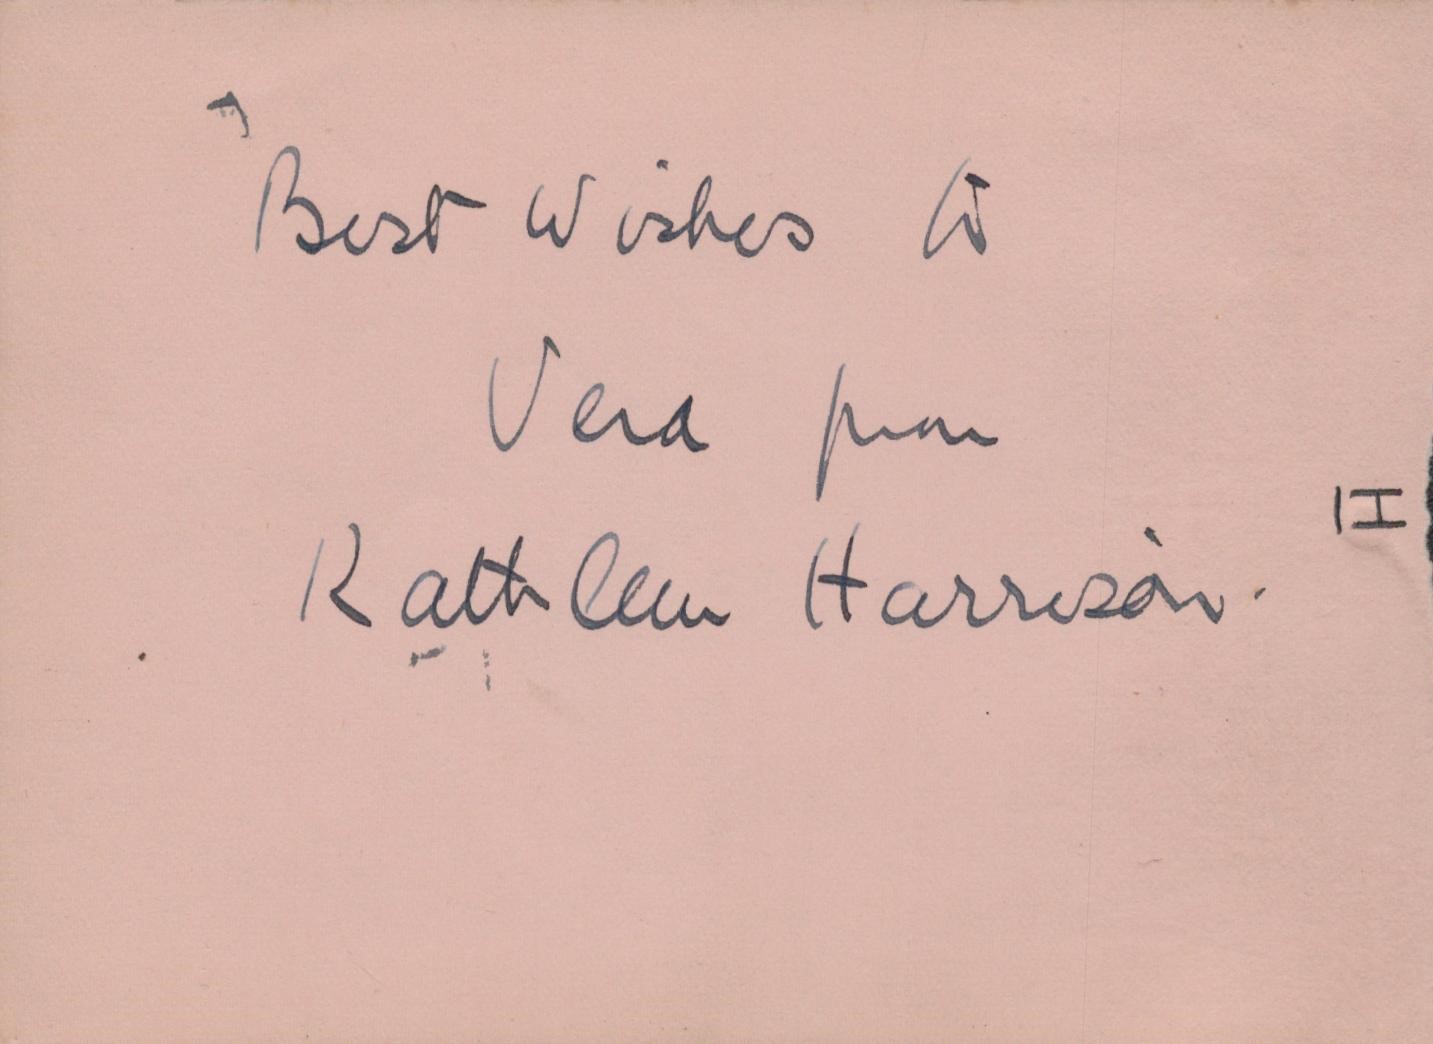 Best Wishes to
Vera from
Kathleen Harrison.